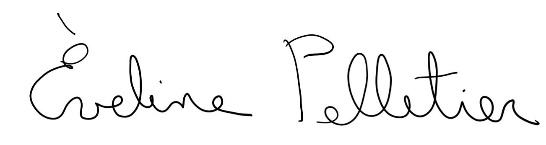 Èveline Pelletier